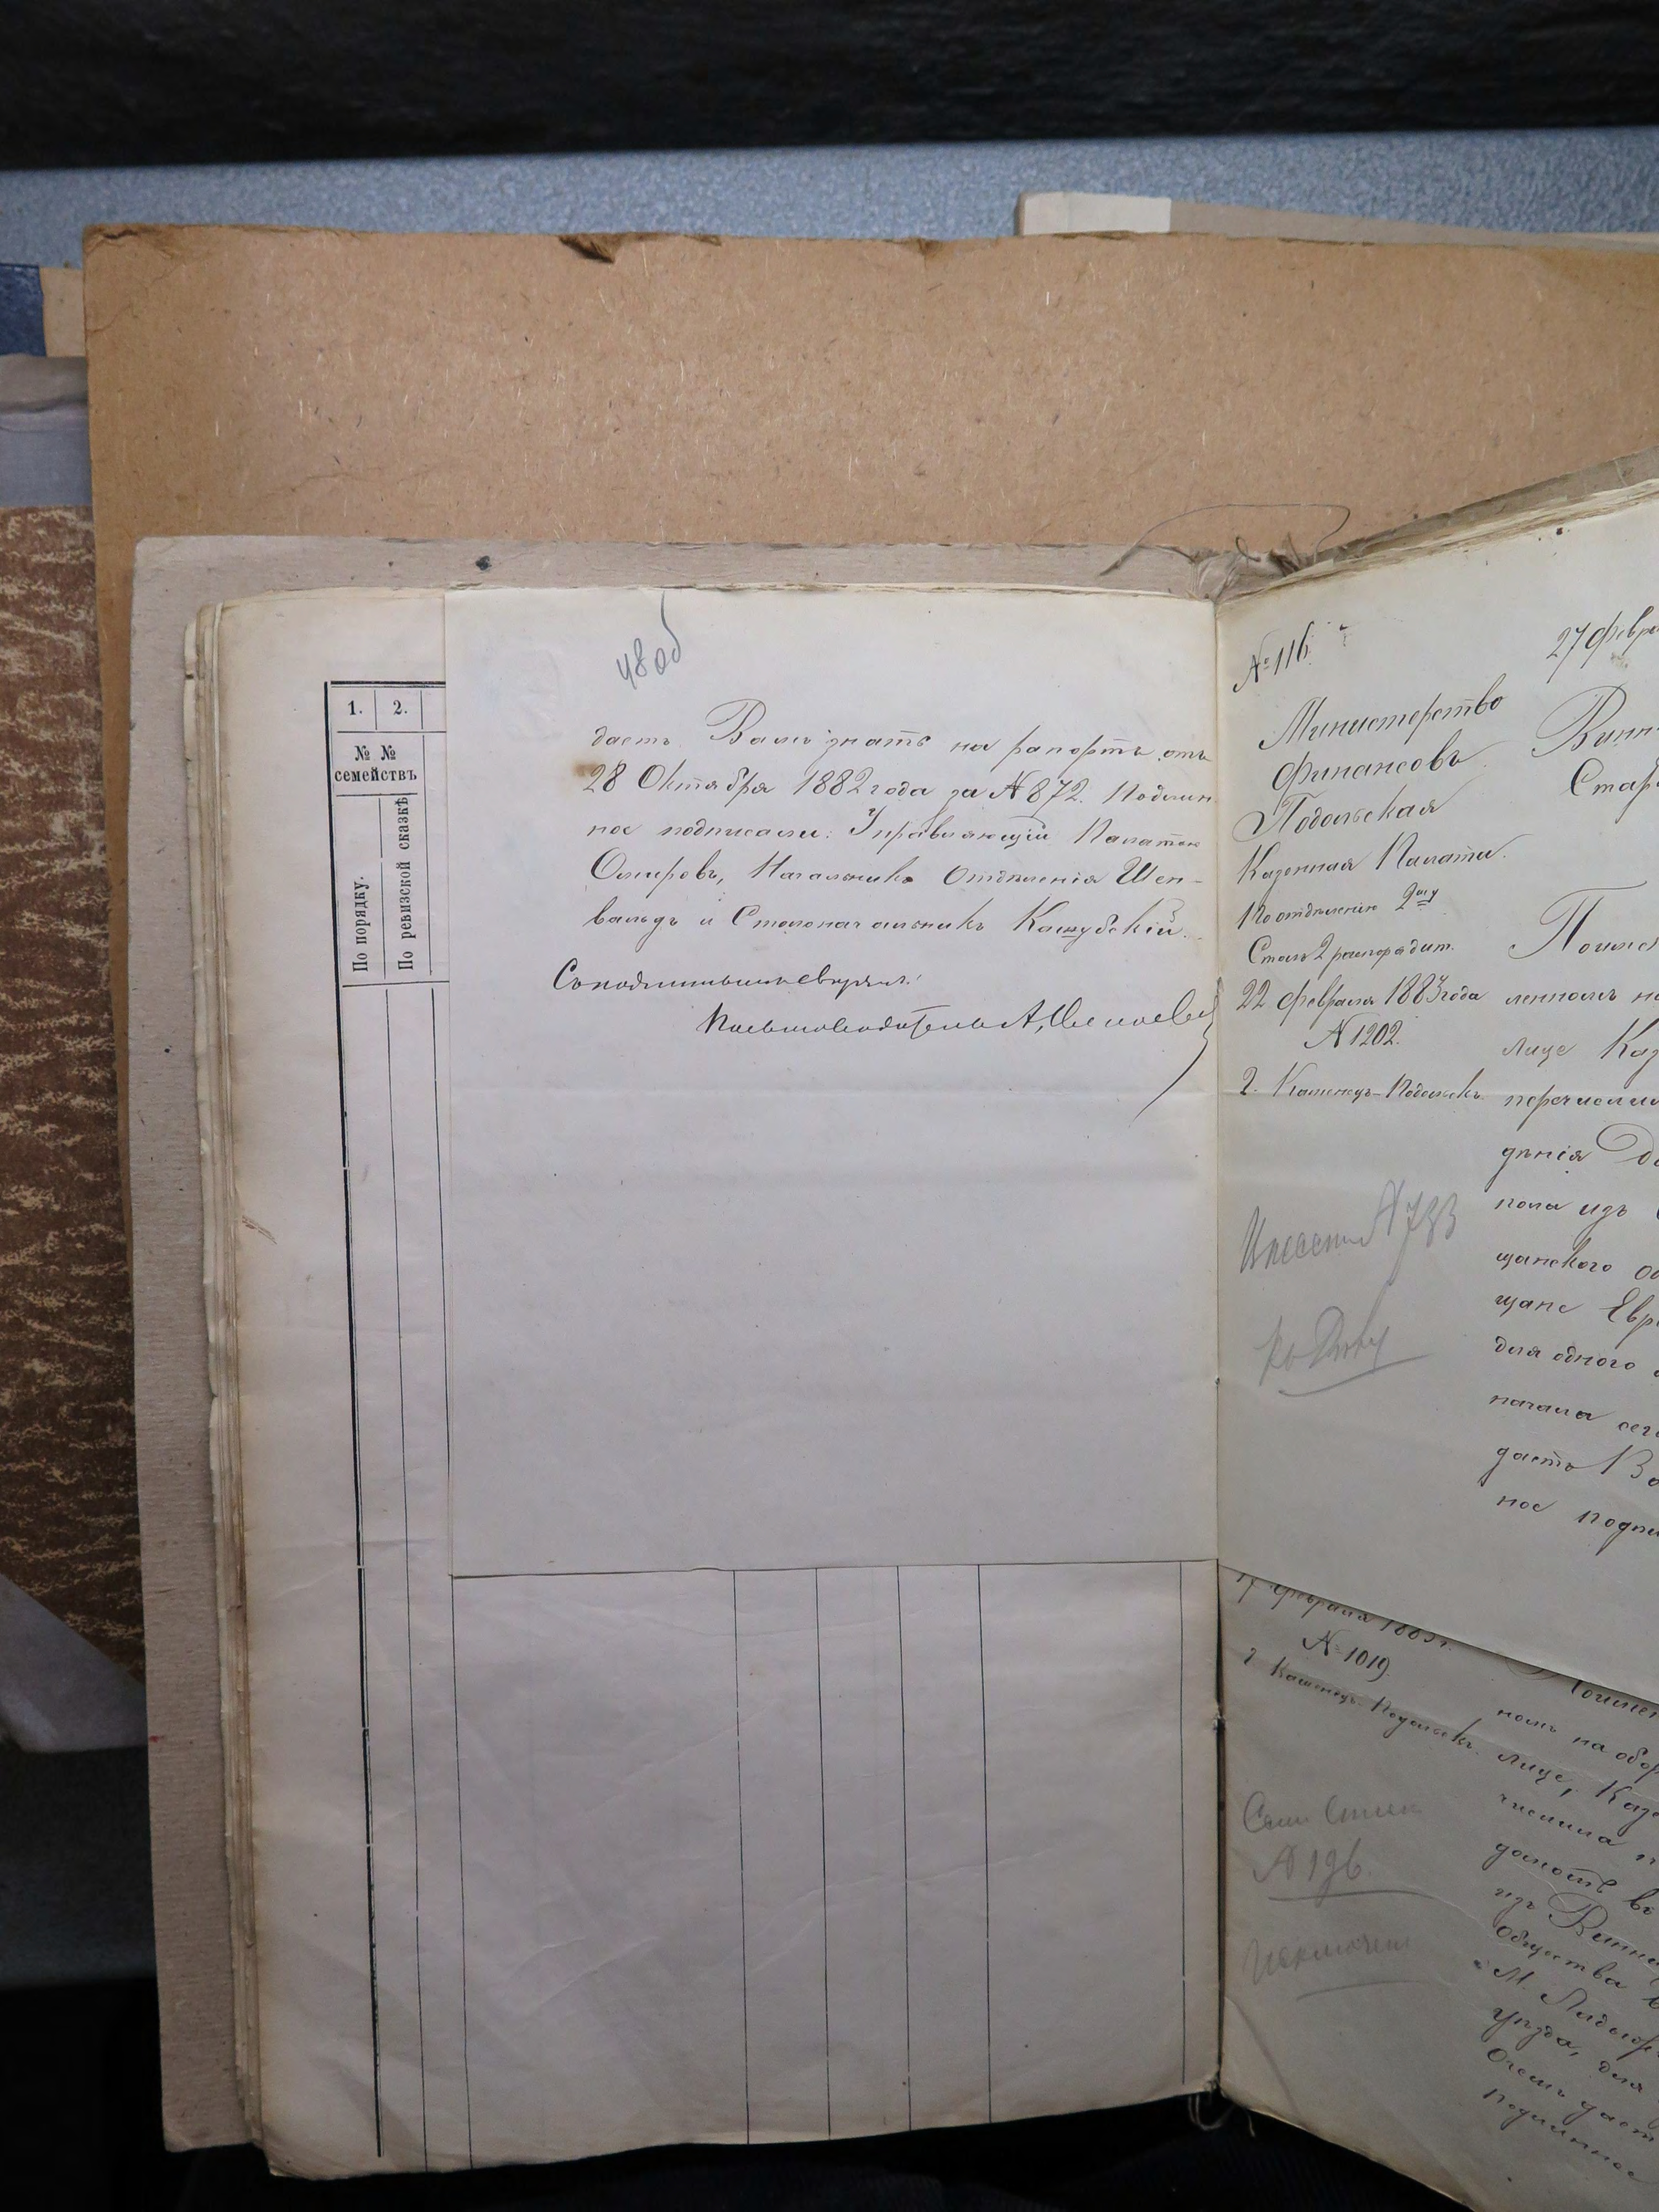 1. 2.
№ № семействъ
По порядку.
По ревизской сказкѣ
48 об
даетъ Вамъ знать на рапортъ отъ
28 Октября 1882 года за № 872. Подлин
ное подписали: Управляющій Палатою
Омировъ, Начальникъ Отдѣленія Шен-
вальдъ и Столоначальникъ Кашубскій.
Съ подлиннымъ вѣрно:
Письмоводитель А.
№ 116.
27 Февра
Министерство
Финансовъ
Подольская
Казенная Палата.
По отдѣленію 2му
Столъ 2 распорядит.
22 Февраля 1883 года
№ 1202.
г. Каменецъ-Подольскъ.
Винн
Старо
Поимен
ленномъ на
лице Каз
перечислил
дѣнія
пола изъ
щанского об
щане Евре
для одного
начала сего
даетъ Ва
ное подпи
№ 783
17 Февраля 1883 г.
№ 1019.
г. Каменецъ-Подольскъ.
Поимен
номъ на обор
лице, Казе
числила
изъ Винни
Общества
уѣзда, для
чемъ даетъ
Подлинное
№ 196.
Исключен